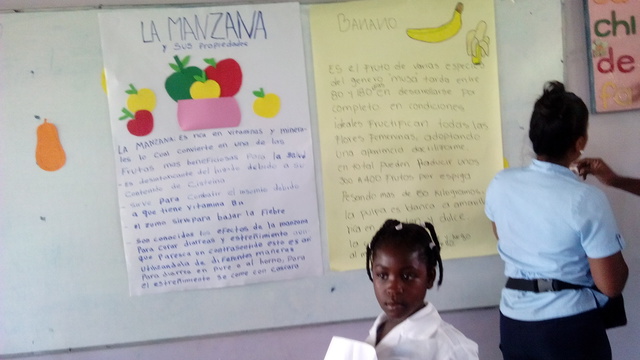 LA MANZANA
y sus propiedades
LA MANZANA es rica en vitaminas y minera-
les lo cual convierte en una de las
frutas mas beneficiosas para la salud
- es desintoxicante del
contenido de cisteina
- sirve para combatir el insomnio debido
a que tiene vitamina B12
- el zumo sirve para bajar la fiebre
son conocidos los efectos de la manzana
Para curar diarreas y estreñimiento aun
que parezca un contrasentido esto es asi
utilizandola de diferentes maneras
Para diarrea en pure o al horno, Para
el estreñimiento se come con cascara
BANANO
Es el fruto de varias especies
del genero musa tarda entre
80 y 180 en desarrollarse por
completo en condiciones
ideales fructifican todas las
flores femeninas, adoptando
una apariencia
en total pueden producir unos
300 a 400 frutos por espiga
Pesando mas de 50 kilogramos
la pulpa es blanca a amarilla
dulce
chi
de